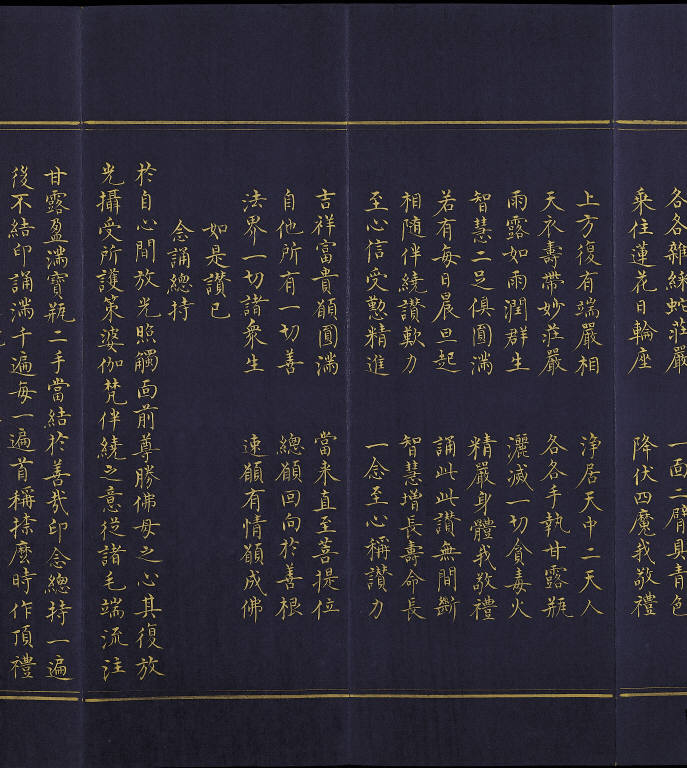 各各雜綵蛇莊嚴　一面二臂具青色
乘住蓮花日輪座　降伏四魔我敬禮
上方復有端嚴相　淨居天中二天人
天衣壽帶妙莊嚴　各各手執甘露瓶
雨露如雨潤群生　灑滅一切貪毒火
智慧二足俱圓滿　精嚴身體我敬禮
若有每日晨旦起　誦此此讃無間斷
相隨伴繞讃歎力　智慧增長壽命長
至心信受懃精進　一念至心稱讃力
吉祥富貴願圓滿　當來直至菩提位
自他所有一切善　總願回向於善根
法界一切諸衆生　速願有情願成佛
如是讃已
念誦總持
於自心間放光照觸面前尊勝佛母之心其復放
光攝受所護策婆伽梵伴繞之意從諸毛端流注
甘露盈滿寶瓶二手當結於善哉印念總持一遍
後不結印誦滿千遍每一遍首稱搽麼時作頂禮